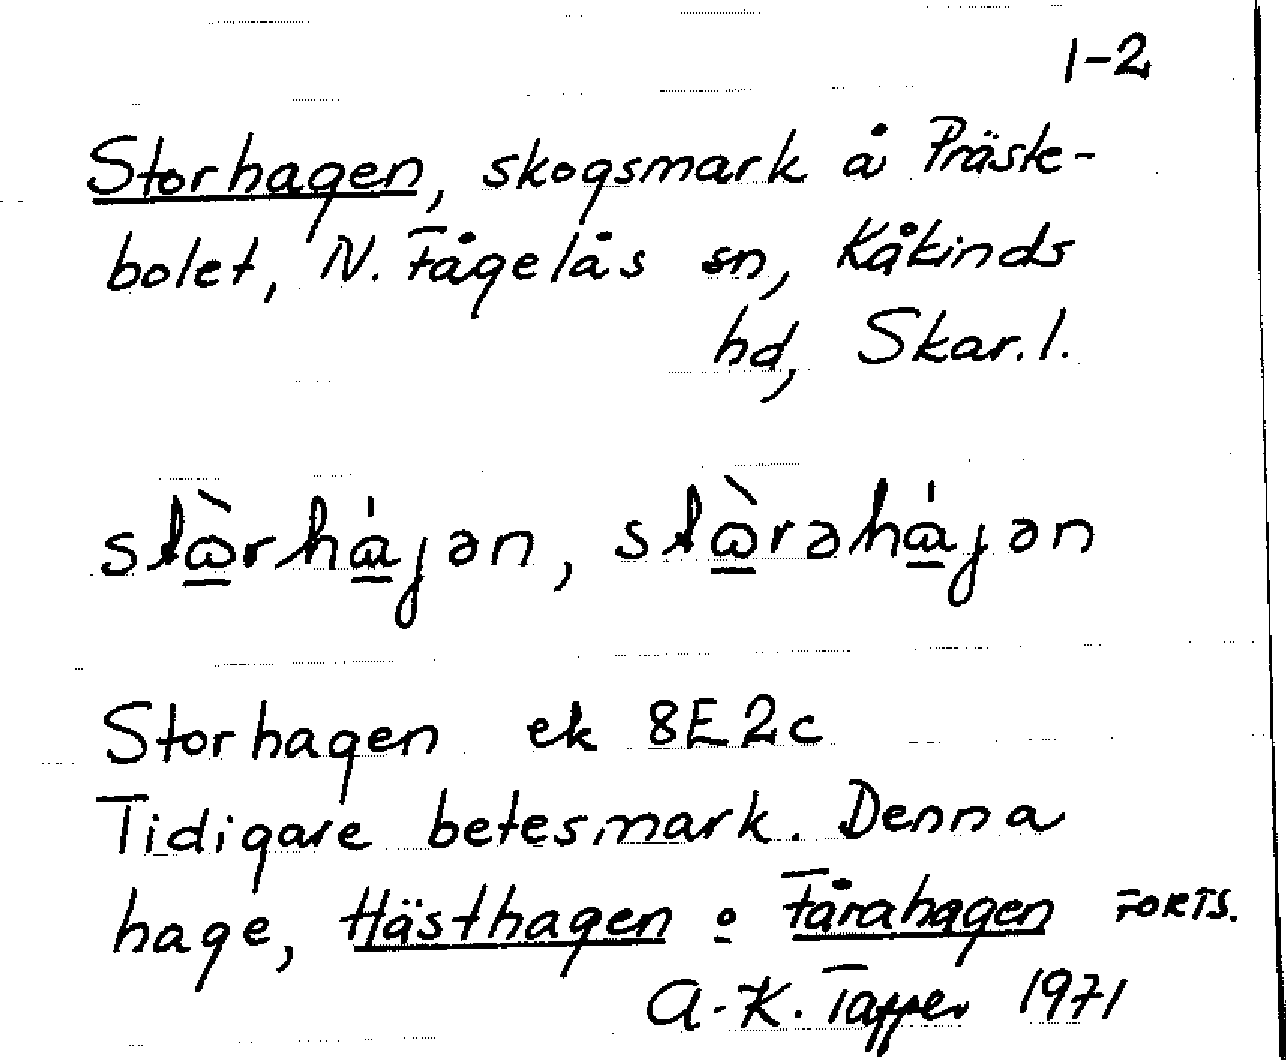 1-2
Storhagen, skogsmark å Präste-
bolet, N. Fågelås sn, Kåkinds
hd, Skar. l.
stὼ̲rhά̲jən, stὼ̲rəhά̲jən
Storhagen ek 8E2c
Tidigare betesmark. Denna
hage, Hästhagen o Fårahagen FORTS.
A-K. Tapper 1971